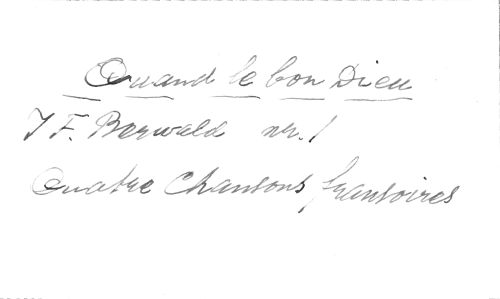 Quand le bon Dieu
J F. Berwald nr. 1
Quatre Chansons fransoires